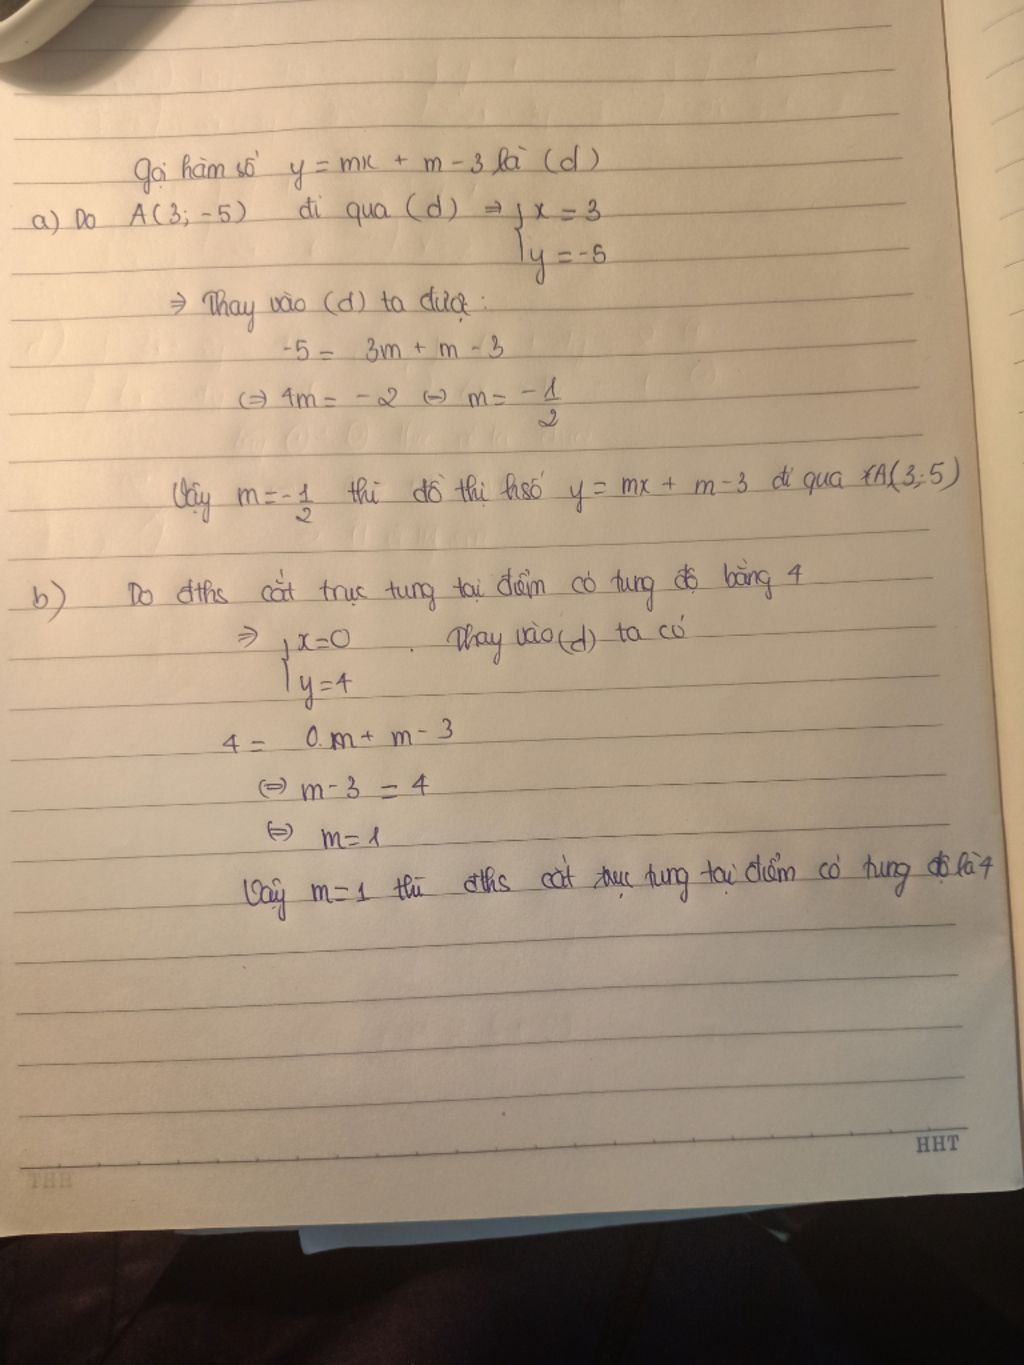 Gọi hàm số y = mx + m - 3 là (d)
a) Do A(3; -5) đi qua (d) ⇒ { x = 3
y = -5
⇒ Thay vào (d) ta được :
-5 = 3m + m - 3
(⇒ 4m = -2 (⇒) m = -1/2
Vậy m = -1/2 thì đồ thị hsố y = mx + m - 3 đi qua A(3;-5)
b) Do đths cắt trục tung tại điểm có tung độ bằng 4
⇒ { x = 0 . Thay vào (d) ta có
y = 4
4 = 0.m + m - 3
(⇒) m - 3 = 4
(⇒) m = 1
Vậy m = 1 thì đths cắt trục tung tại điểm có tung độ là 4
HHT
THH